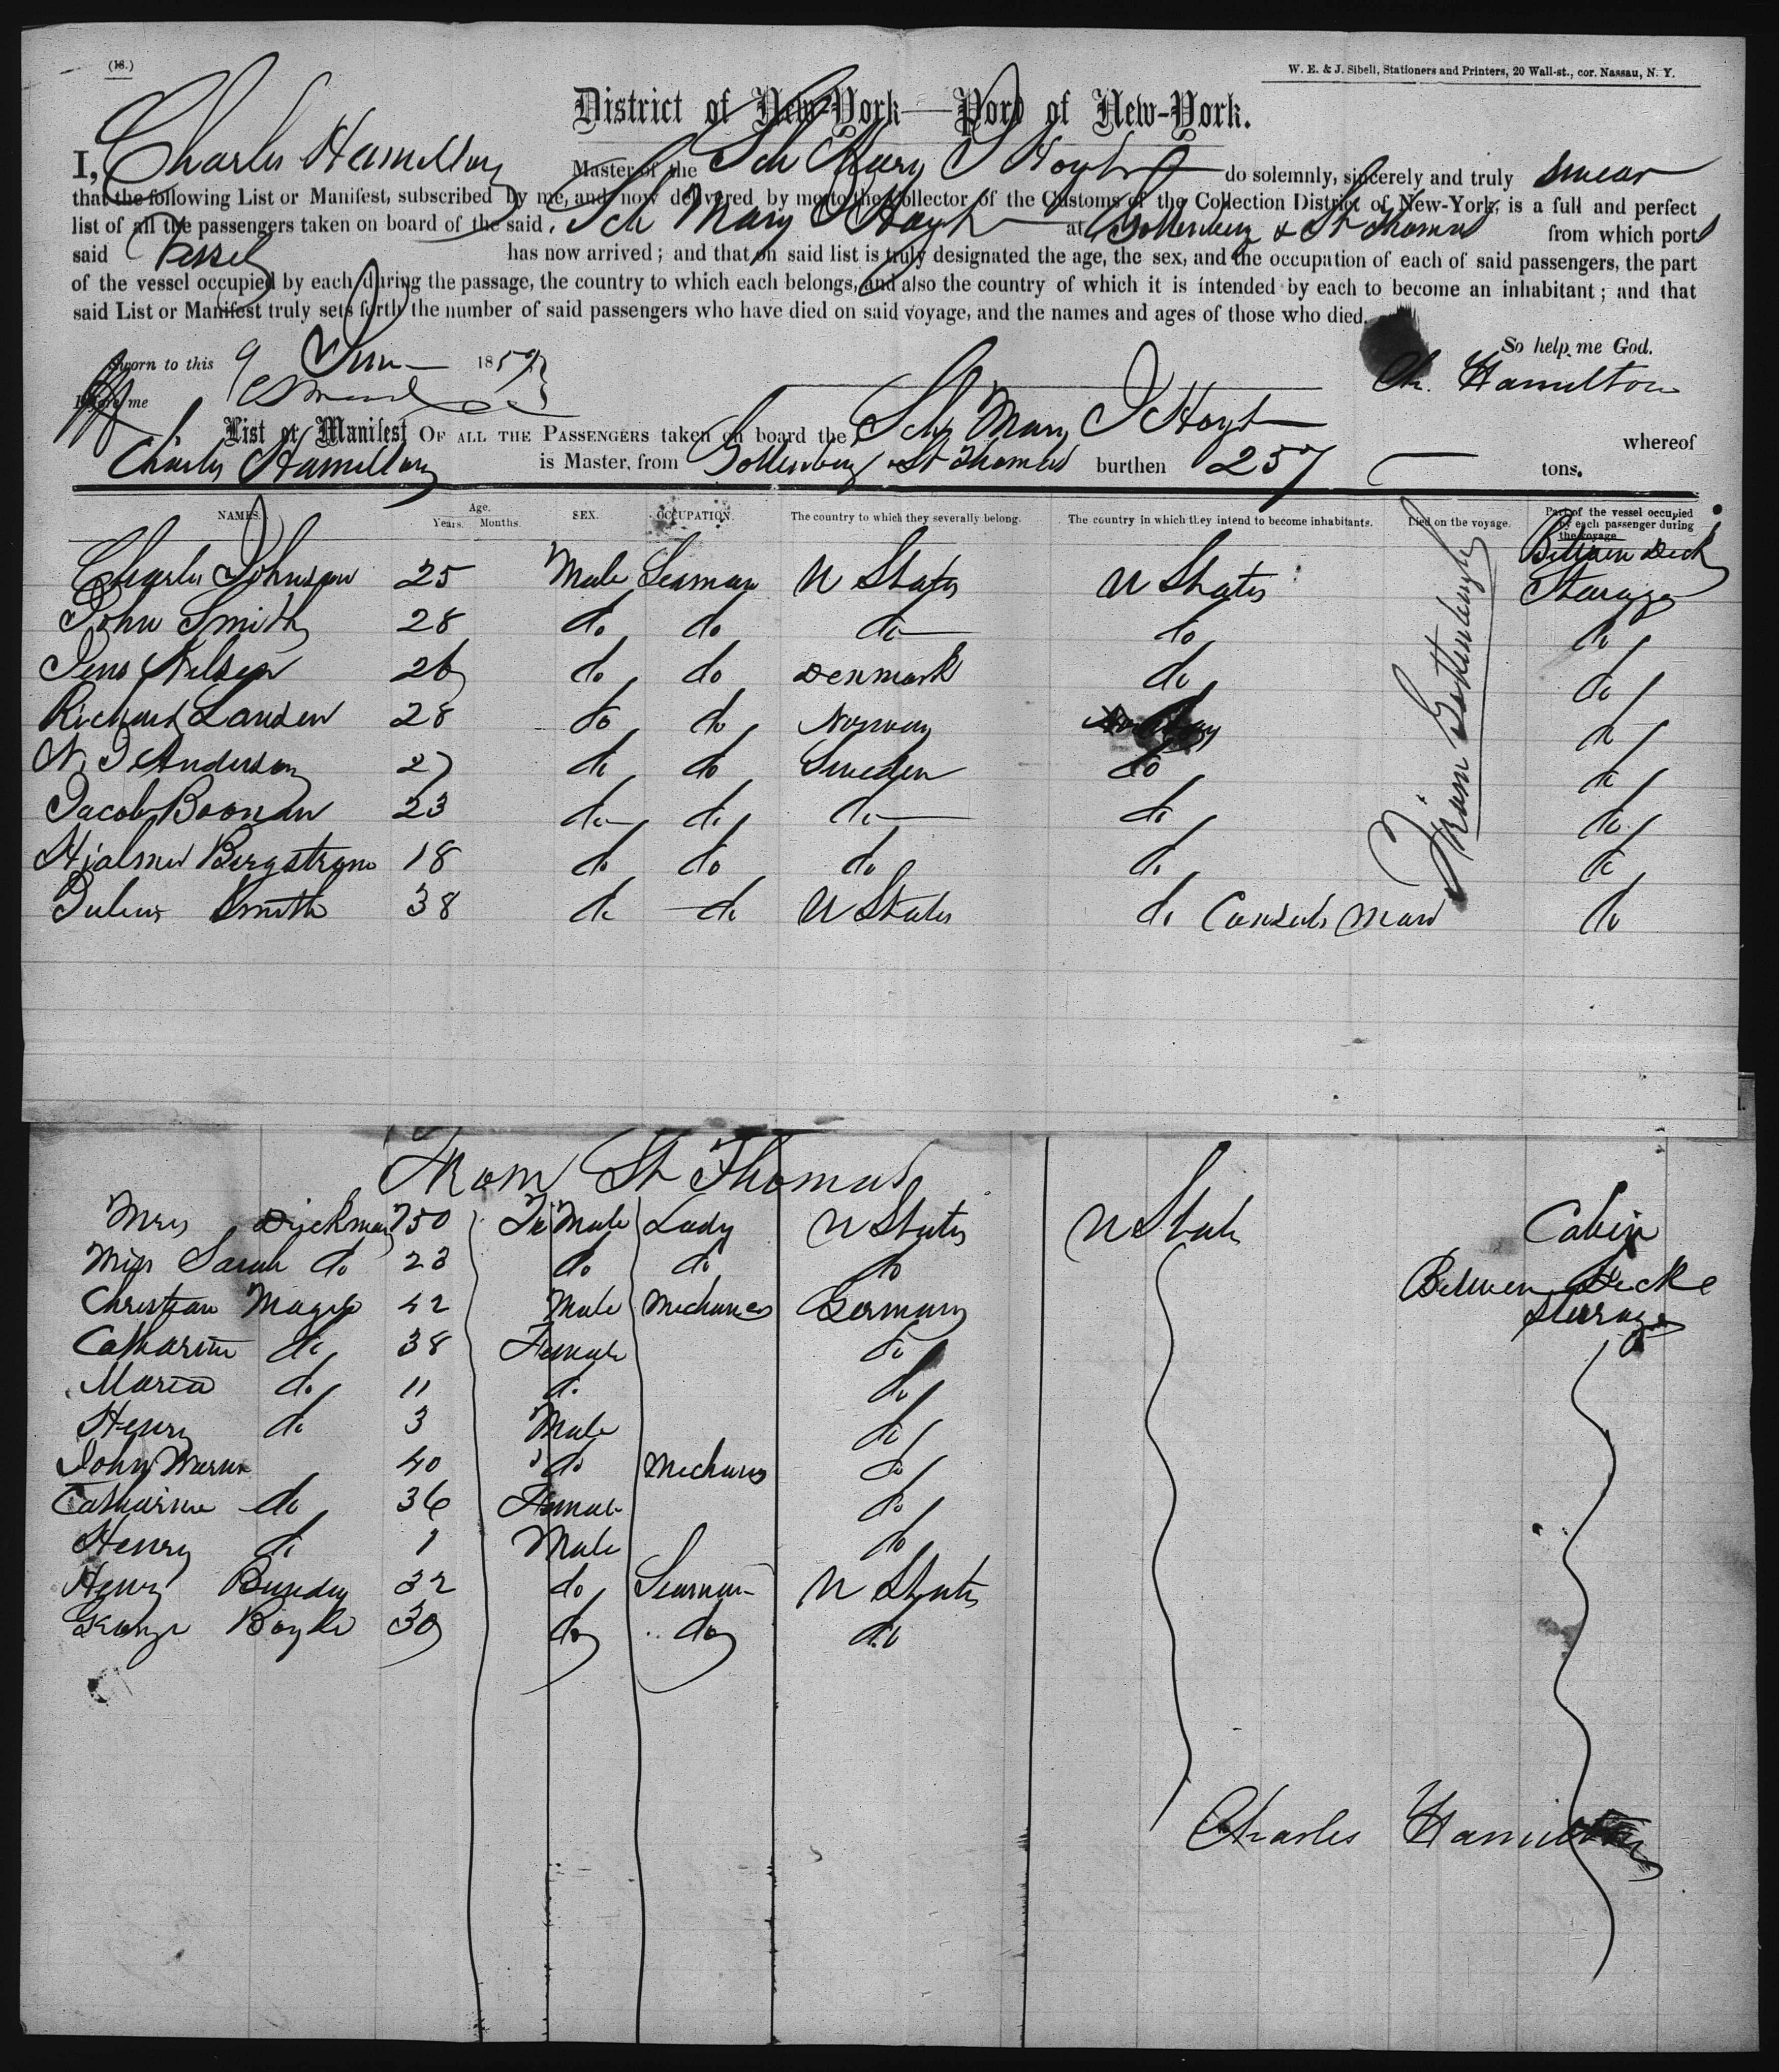 (18.)
W. E. & J. Sibell, Stationers and Printers, 20 Wall-st., cor. Nassau, N. Y.
District of New-York—Port of New-York.
I, Charles Hamilton Master of the Sch Mary J Hoyt do solemnly, sincerely and truly swear
that the following List or Manifest, subscribed by me, and now delivered by me to the Collector of the Customs of the Collection District of New-York, is a full and perfect
list of all the passengers taken on board of the said Sch Mary J Hoyt at Gottenburg & St Thomas from which ports
said Vessel has now arrived; and that on said list is truly designated the age, the sex, and the occupation of each of said passengers, the part
of the vessel occupied by each during the passage, the country to which each belongs, and also the country of which it is intended by each to become an inhabitant; and that
said List or Manifest truly sets forth the number of said passengers who have died on said voyage, and the names and ages of those who died.
So help me God.
Sworn to this 9 June 1859
Ch. Hamilton
Before me
List or Manifest OF ALL THE PASSENGERS taken on board the Sch Mary J Hoyt whereof
Charles Hamilton is Master, from Gottenburg & St Thomas burthen 257 tons.
NAMES. Age. Years. Months. SEX. OCCUPATION. The country to which they severally belong. The country in which they intend to become inhabitants. Died on the voyage. Part of the vessel occupied by each passenger during the voyage
Charles Johnson 25 Male Seaman U States U States Between Deck Stearage
John Smith 28 do do do do do
Jens Nelsen 26 do do Denmark do do
Richard Larsen 28 do do Norway do
N. J. Anderson 27 do do Sweden do do
Jacob Booman 23 do do do do do
Hjalmer Bergstrom 18 do do do do do
Julius Smith 38 do do U States do Consuls Man do
From Gottenburgh
From St Thomas
Mrs Dickman 50 Fe Male Lady U States U State Cabin
Miss Sarah do 23 do do do
Christian Mages 42 Male Mechanic Germany Between Decke Sterrage
Catharine do 38 Female do
Maria do 11 do do
Henry do 3 Male do
John 40 do Mechanic do
Catharine do 36 Female do
Henry do 1 Male do
Henry Bunday 32 do Seaman U States
George Boyle 30 do do do
Charles Hamilton